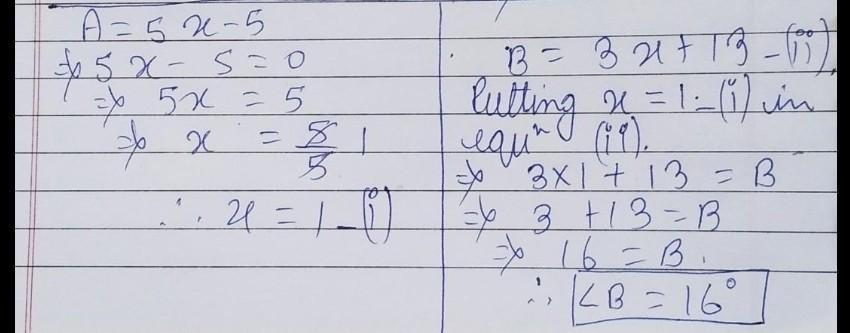 A = 5x - 5
⇒ 5x - 5 = 0
⇒ 5x = 5
⇒ x = 5/5 1
∴ x = 1 - (i)
B = 3x + 13 - (ii)
Putting x = 1 - (i) in
equⁿ (ii).
⇒ 3×1 + 13 = B
⇒ 3 + 13 = B
⇒ 16 = B.
∴ ∠B = 16°